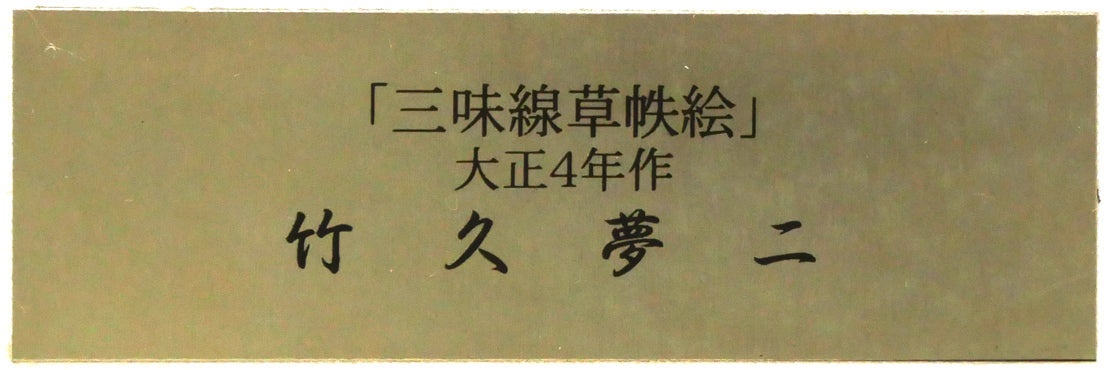 「三味線草帙絵」
大正4年作
竹久夢二